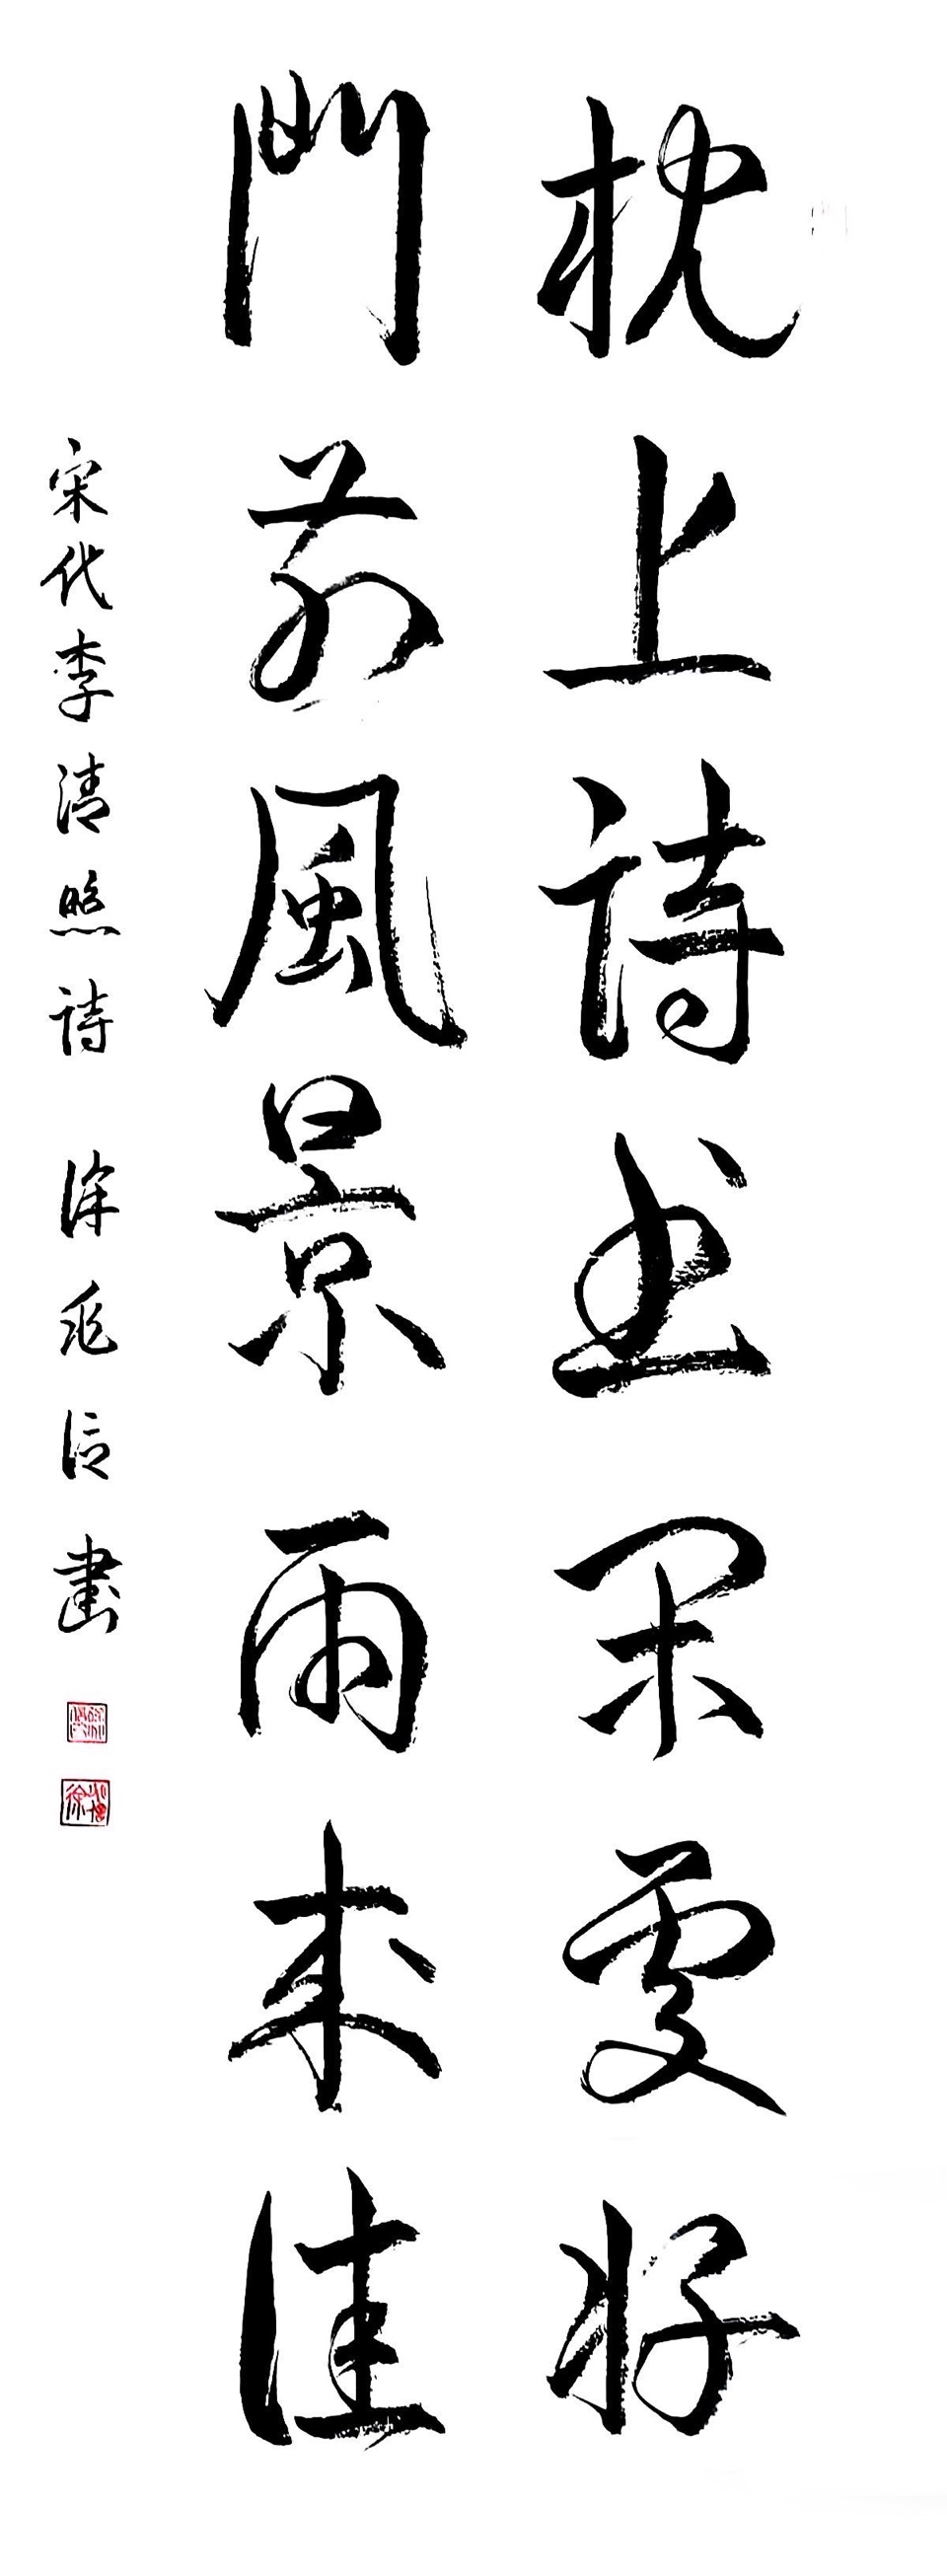 枕上詩书閑處好
門前風景雨來佳
宋代李清照詩 徐兆信書